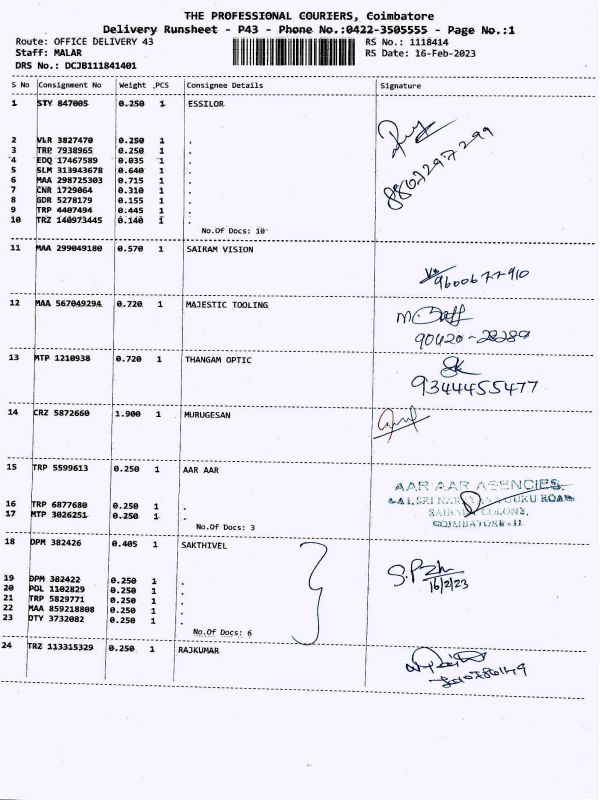 THE PROFESSIONAL COURIERS, Coimbatore
Delivery Runsheet - P43 - Phone No.:0422-3505555 - Page No.:1
Route: OFFICE DELIVERY 43 RS No.: 1118414
Staff: MALAR RS Date: 16-Feb-2023
DRS No.: DCJB111841401
S No Consignment No Weight .PCS Consignee Details Signature
1 STY 847005 0.250 1 ESSILOR
2 VLR 3827470 0.250 1 .
3 TRP 7938965 0.250 1 .
4 EDQ 17467589 0.035 1 .
5 SLM 313943678 0.640 1 .
6 MAA 298725303 0.715 1 .
7 CNR 1729064 0.310 1 .
8 GDR 5278179 0.155 1 .
9 TRP 4407494 0.445 1 .
10 TRZ 140973445 0.140 1 .
No.Of Docs: 10
8807297299
11 MAA 299049180 0.570 1 SAIRAM VISION
9600677910
12 MAA 567049294 0.720 1 MAJESTIC TOOLING
90420-28289
13 MTP 1210938 0.720 1 THANGAM OPTIC
9344455477
14 CRZ 5872660 1.900 1 MURUGESAN
15 TRP 5599613 0.250 1 AAR AAR
AAR AAR AGENCIES,
16 TRP 6877680 0.250 1 .
17 MTP 3026251 0.250 1 .
No.Of Docs: 3
COIMBATORE-11
18 DPM 382426 0.405 1 SAKTHIVEL
16/2/23
19 DPM 382422 0.250 1 .
20 POL 1102829 0.250 1 .
21 TRP 5829771 0.250 1 .
22 MAA 859218808 0.250 1 .
23 OTY 3732082 0.250 1 .
No.Of Docs: 6
24 TRZ 113315329 0.250 1 RAJKUMAR